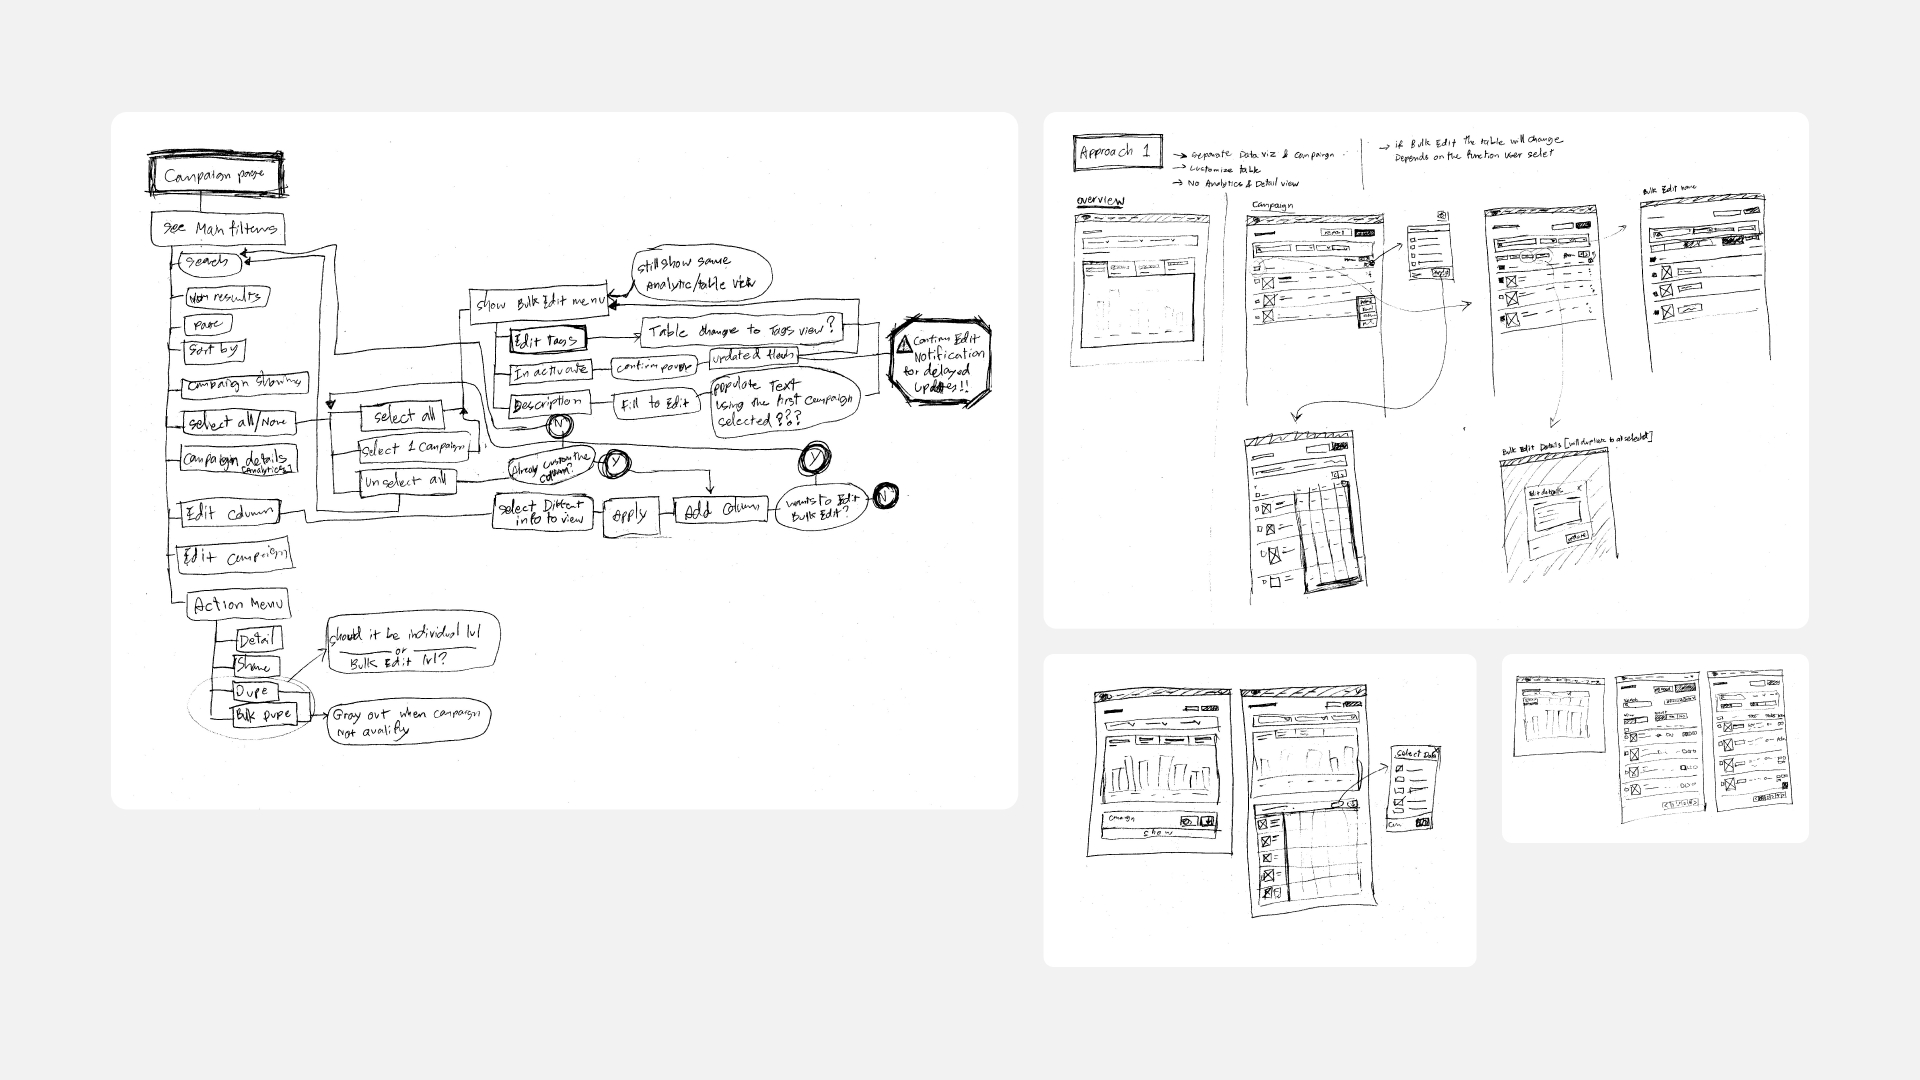 Campaign page
See Main filters
Search
Num results
Page
Sort by
Campaign showing
Select all/None
Campaign details
[Analytics]
Edit column
Edit campaign
Action Menu
Detail
Share
Dupe
Bulk Dupe
Should it be individual lvl
or
Bulk Edit lvl?
Gray out when campaign
not qualify
Select all
Select 1 Campaign
Unselect all
Show Bulk Edit menu
Still show same
Analytic/table view
Edit Tags
Table change to Tags view?
Inactivate
Confirm
updated flash
Description
Fill to Edit
populate Text
using the first campaign
selected ???
Confirm Edit
Notification
for delayed
updates!!
N
Already custom the
column?
Y
Y
Select Diffent
info to view
Apply
Add Column
wants to Edit
Bulk Edit?
N
Approach 1
→ Separate Data viz & Campaign
→ Customize table
→ No Analytics & Detail view
→ if Bulk Edit the table will change
Depends on the function user select
overview
Campaign
Bulk Edit
Bulk Edit Details
Edit details
Select Data
Show